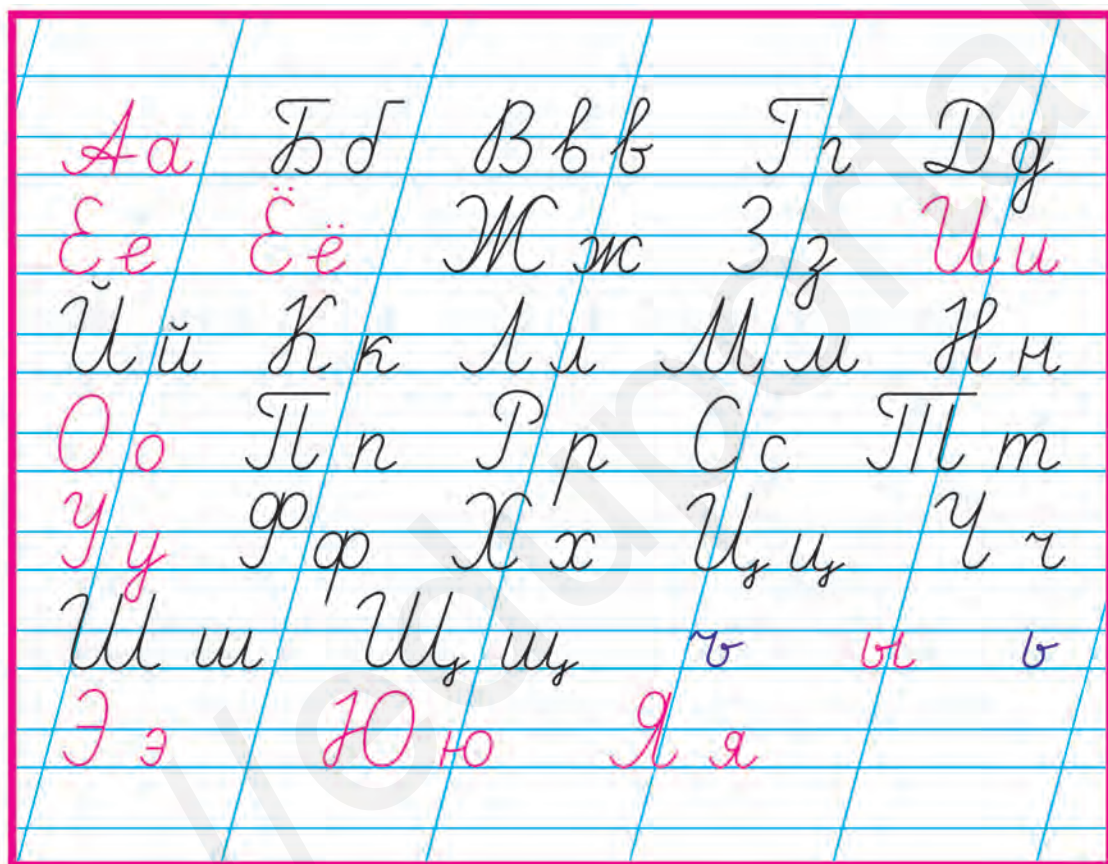 Аа Бб Ввв Гг Дд
Ее Ёё Жж Зз Ии
Йй Кк Лл Мм Нн
Оо Пп Рр Сс Тт
Уу Фф Хх Цц Чч
Шш Щщ ъ ы ь
Ээ Юю Яя